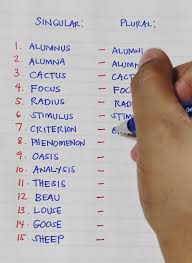 SINGULAR: PLURAL:
1. ALUMNUS – ALUMNI
2. ALUMNA – ALUMN
3. CACTUS – CACT
4. FOCUS – FOC
5. RADIUS – RAD
6. STIMULUS – STIM
7. CRITERION –
8. PHENOMENON –
9. OASIS –
10. ANALYSIS –
11. THESIS –
12. BEAU –
13. LOUSE –
14. GOOSE –
15. SHEEP –